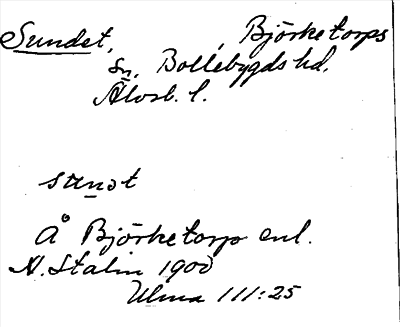 Sundet, Björketorps
sn, Bollebygds hd.
Älvsb. l.
sunət
Å Björketorp enl.
N. Stalin 1900
Ulma 111:25